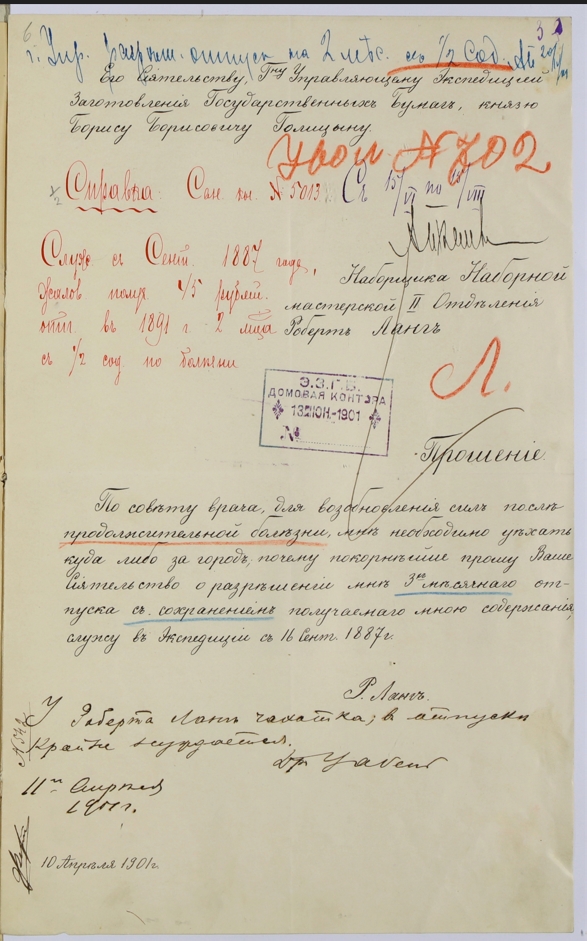 6
г. Упр. разреш. отпуск на 2 мѣс. съ 1/2 сод.
Его Сіятельству, Гну Управляющему Экспедиціей
Заготовленія Государственныхъ Бумагъ, князю
Борису Борисовичу Голицыну.
Увол № 702
Справка. Сан. кн. № 5013
Съ 15/VI по 15/VIII
Служ. съ Сент. 1887 года,
Жалов. получ. 45 рублей.
отп. въ 1891 г. 2 м-ца
съ 1/2 сод. по болѣзни
Наборщика Наборной
мастерской II Отдѣленія
Робертъ Лангъ
Л.
Э.З.Г.Б.
ДОМОВАЯ КОНТОРА
13 ІЮН. 1901
№
Прошеніе
По совѣту врача, для возобновленія силъ послѣ
продолжительной болѣзни, мнѣ необходимо уѣхать
куда либо за городъ, почему покорнѣйше прошу Ваше
Сіятельство о разрѣшеніи мнѣ 3хъ мѣсячнаго от-
пуска съ сохраненіемъ получаемаго мною содержанія,
служу въ Экспедиціи съ 16 Сент. 1887 г.
Р. Лангъ.
У Роберта Лангъ чахотка; в отпуски
крайне нуждается.
Др
11го Апрѣля
1901 г.
10 Апрѣля 1901 г.